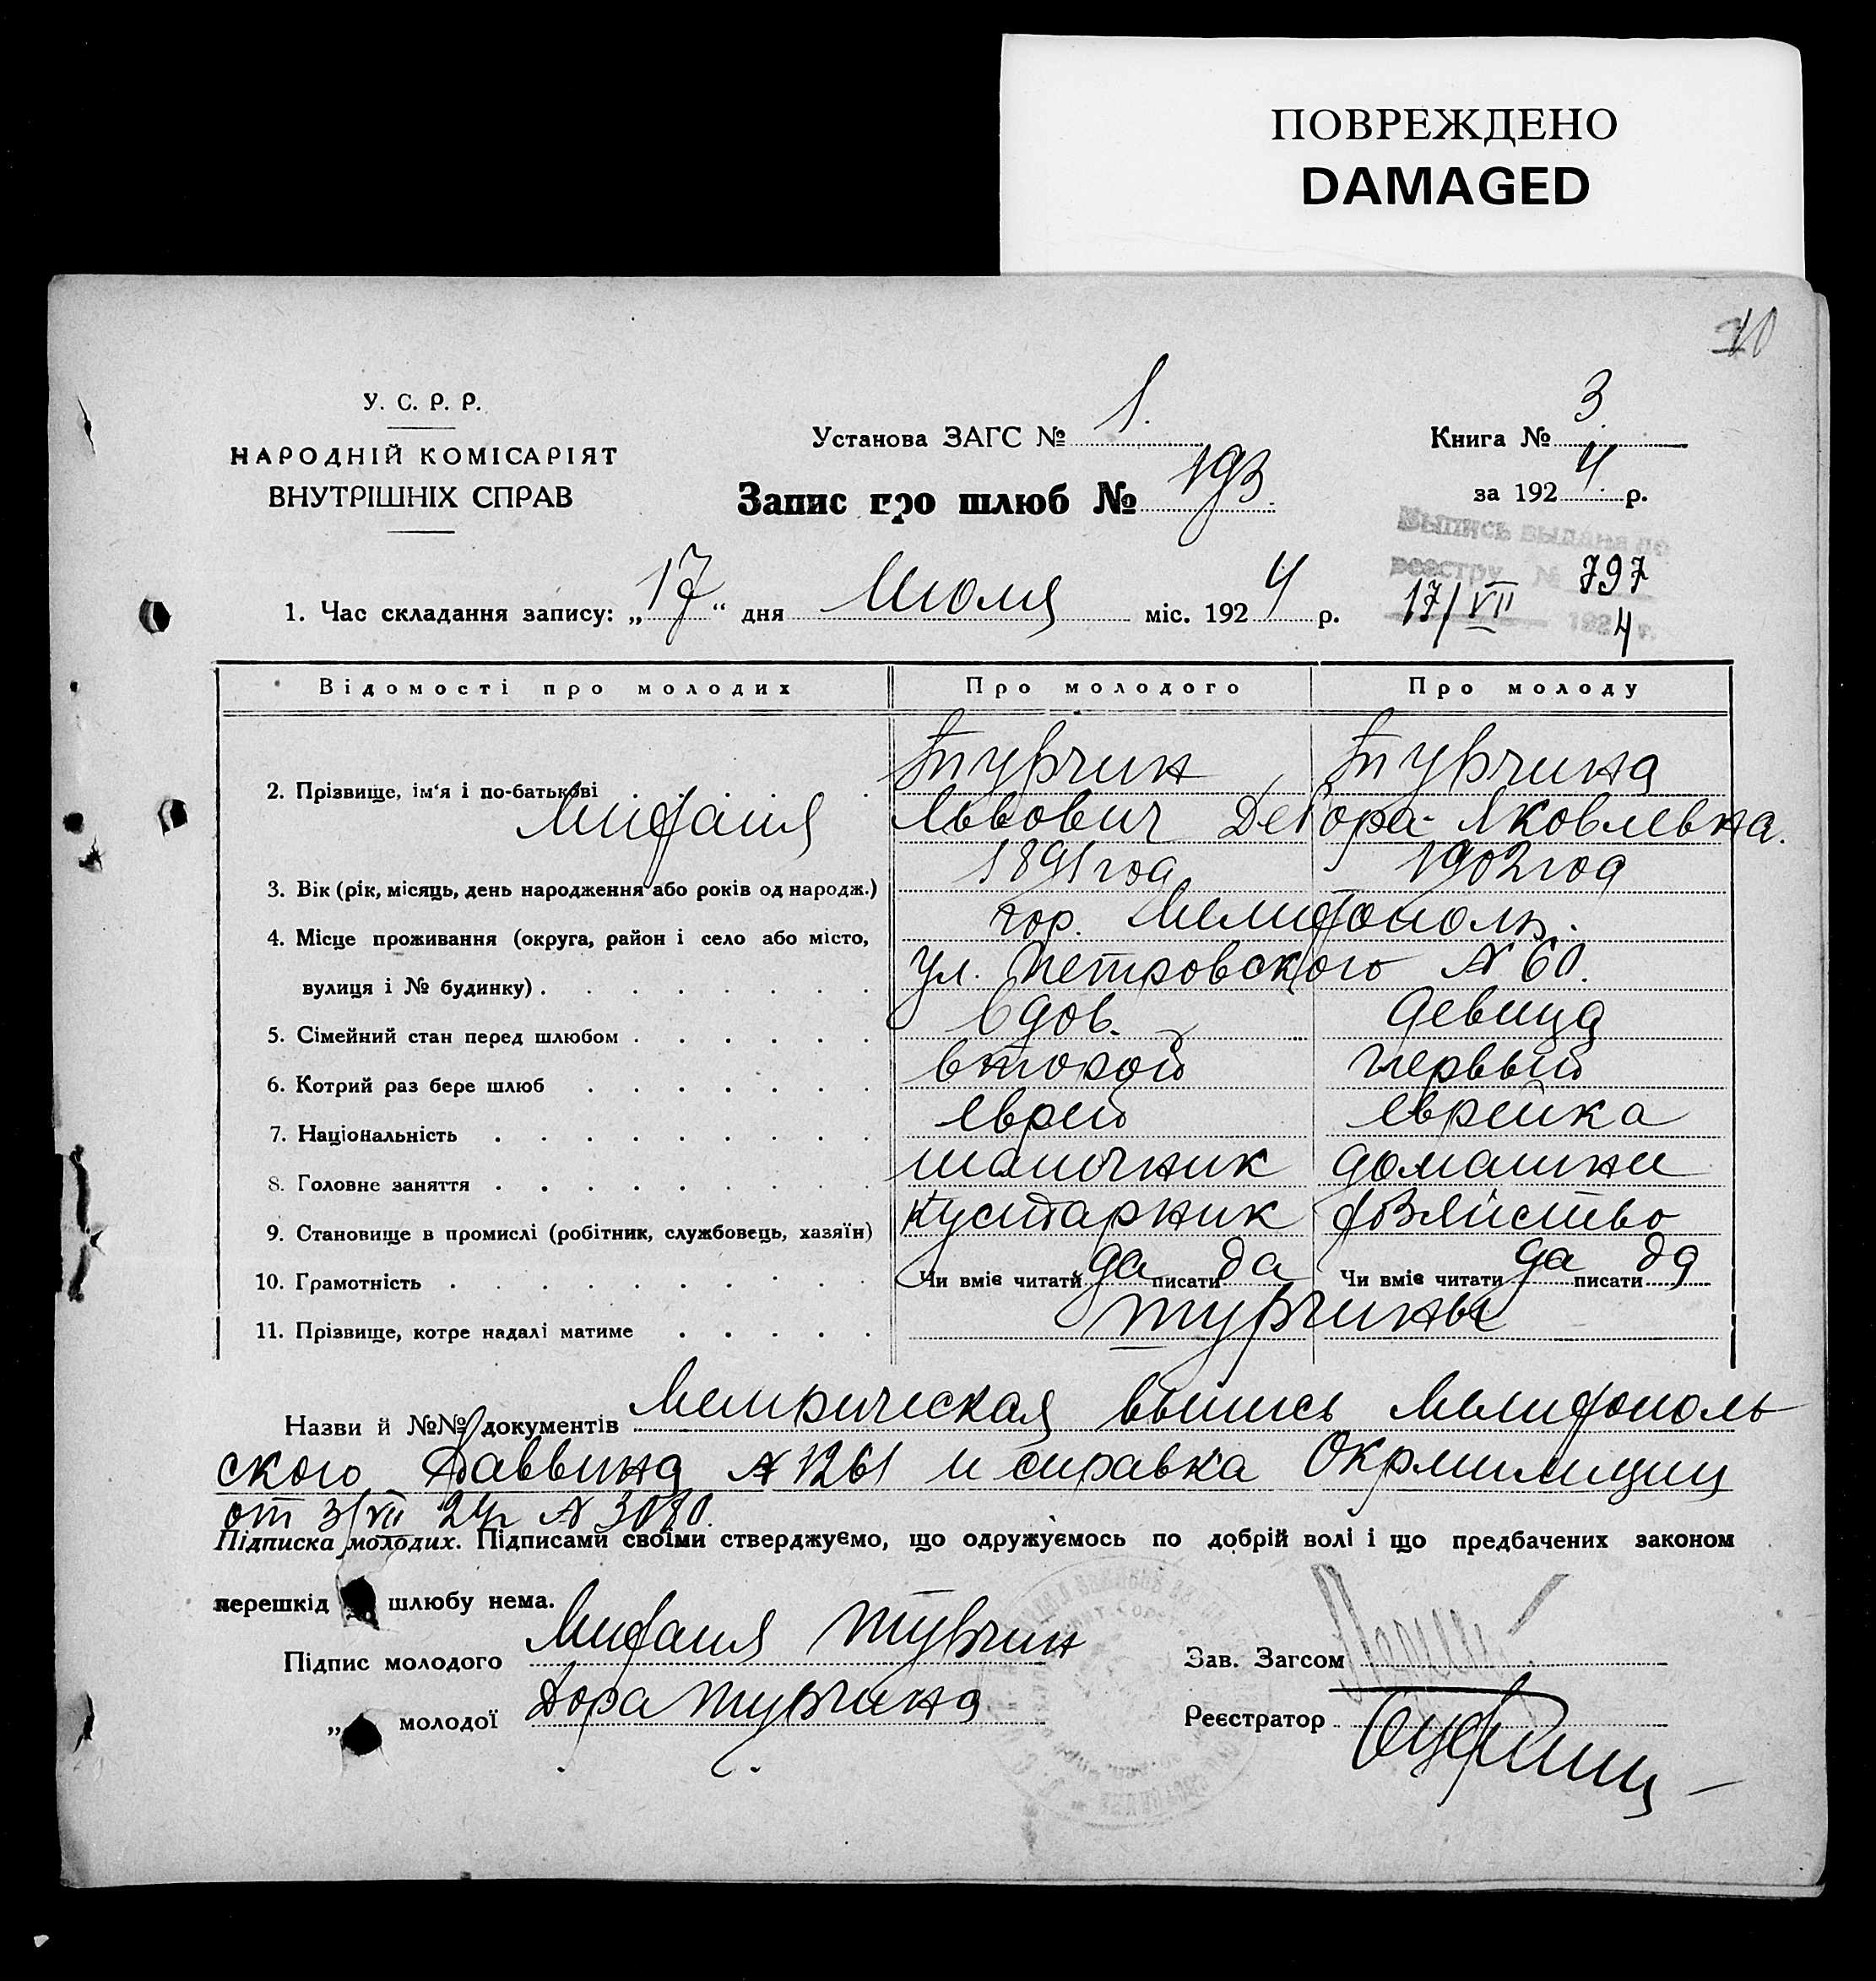 ПОВРЕЖДЕНО
DAMAGED
У. С. Р. Р.
НАРОДНІЙ КОМІСАРІЯТ
ВНУТРІШНІХ СПРАВ
Установа ЗАГС № 1.
Книга № 3.
Запис про шлюб № 193.
за 1924 р.
Выпись выдана по
реестру № 797
17/VII 1924 г.
1. Час складання запису: „17“ дня Июля міс. 1924 р.
Відомості про молодих Про молодого Про молоду
Турчин Турчина
2. Прізвище, ім‘я і по-батькові
Львович Дебора Яковлевна.
1891 год 1902 год
3. Вік (рік, місяць, день народження або років од народж.)
гор. Мелитополь.
4. Місце проживання (округа, район і село або місто,
ул. Петровского № 60.
вулиця і № будинку)
5. Сімейний стан перед шлюбом вдов. девица
6. Котрий раз бере шлюб второй первый
7. Національність еврей еврейка
8. Головне заняття шапочник домашнее
9. Становище в промислі (робітник, службовець, хазяїн) кустарник хозяйство
10. Грамотність Чи вміє читати да писати да Чи вміє читати да писати да
11. Прізвище, котре надалі матиме Турчины
Назви й №№ документів Метрическая выпись Мелитополь
ского Раввина № 1261 и справка Окрмилиции
от 3/VII 24г №
Підписка молодих. Підписами своїми стверджуємо, що одружуємось по добрій волі і що предбачених законом
перешкід до шлюбу нема.
Підпис молодого Турчин
Зав. Загсом
„ молодої Дора Турчина
Реєстратор